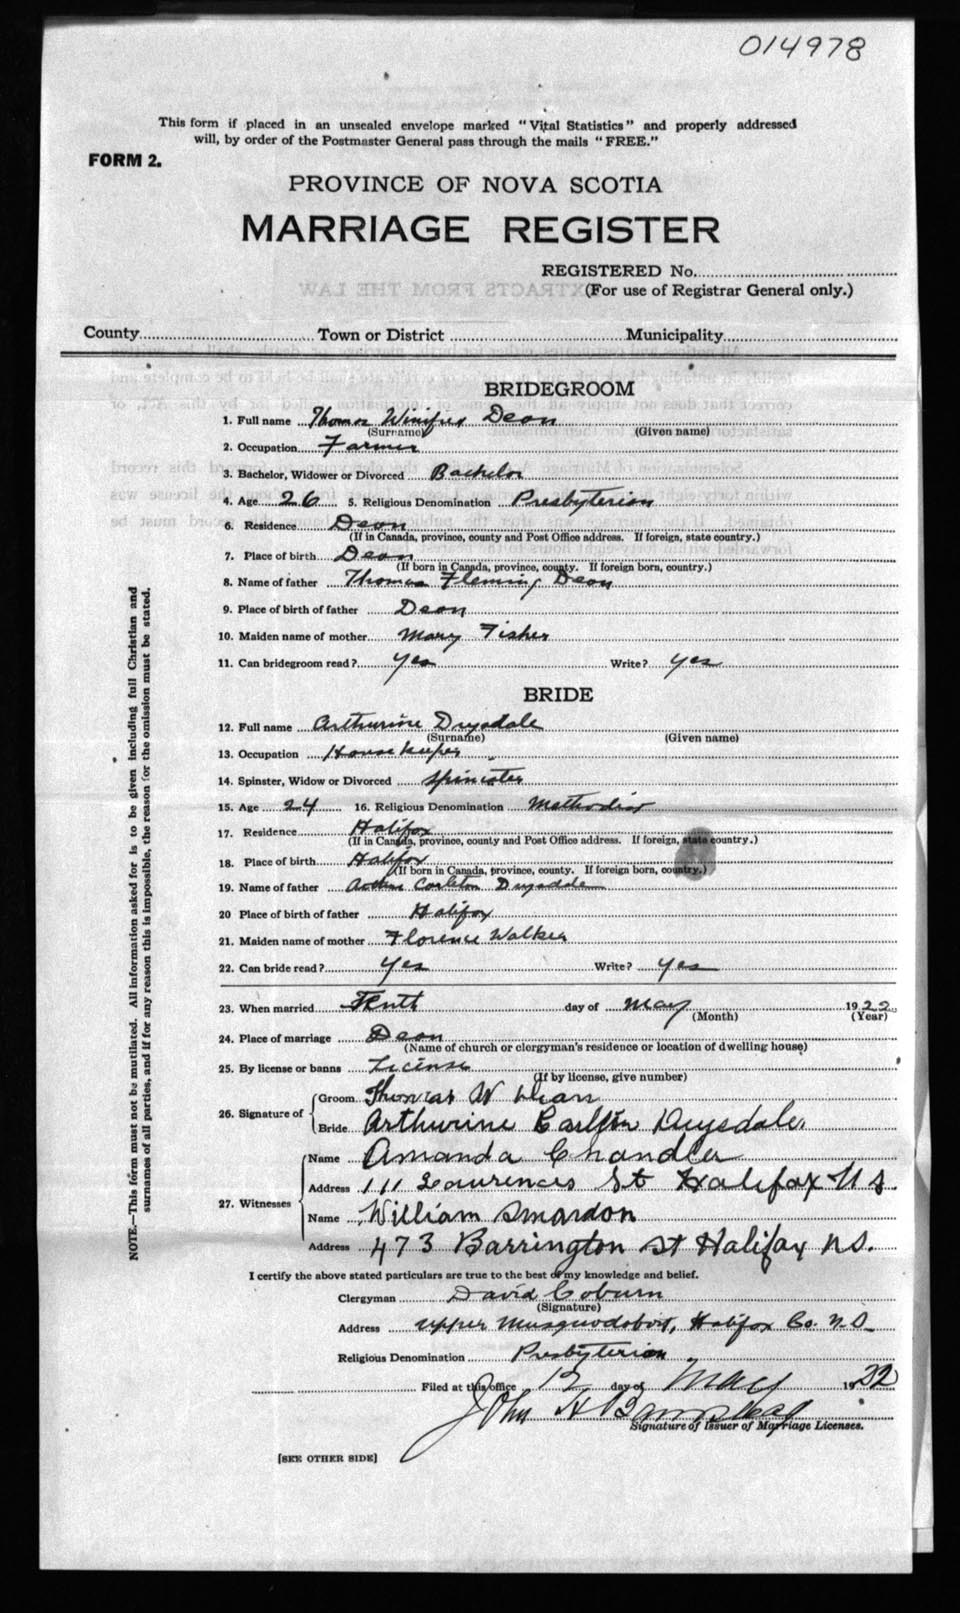 014978
This form if placed in an unsealed envelope marked "Vital Statistics" and properly addressed
will, by order of the Postmaster General pass through the mails "FREE."
FORM 2.
PROVINCE OF NOVA SCOTIA
MARRIAGE REGISTER
REGISTERED No.
(For use of Registrar General only.)
EXTRACTS FROM THE LAW
County Town or District Municipality
BRIDEGROOM
1. Full name Thomas Winifred Dean
(Surname) (Given name)
2. Occupation Farmer
3. Bachelor, Widower or Divorced Bachelor
4. Age 26 5. Religious Denomination Presbyterian
6. Residence Dean
(If in Canada, province, county and Post Office address. If foreign, state country.)
7. Place of birth Dean
(If born in Canada, province, county. If foreign born, country.)
8. Name of father Thomas Fleming Dean
9. Place of birth of father Dean
10. Maiden name of mother Mary Fisher
11. Can bridegroom read? yes Write? yes
BRIDE
12. Full name Arthurine Drysdale
(Surname) (Given name)
13. Occupation Housekeeper
14. Spinster, Widow or Divorced Spinster
15. Age 24 16. Religious Denomination Methodist
17. Residence Halifax
(If in Canada, province, county and Post Office address. If foreign, state country.)
18. Place of birth Halifax
(If born in Canada, province, county. If foreign born, country.)
19. Name of father Carleton Drysdale
20 Place of birth of father Halifax
21. Maiden name of mother Florence Walker
22. Can bride read? yes Write? yes
23. When married Tenth day of May 1922
(Month) (Year)
24. Place of marriage Dean
(Name of church or clergyman's residence or location of dwelling house)
25. By license or banns License
(If by license, give number)
26. Signature of
Groom Thomas W Dean
Bride Arthurine Carlton Drysdale
27. Witnesses
Name Amanda Chandler
Address 111 Lawrences St Halifax N S.
Name William Smardon
Address 473 Barrington St Halifax N.S.
I certify the above stated particulars are true to the best of my knowledge and belief.
Clergyman David Coburn
(Signature)
Address Upper Musquodoboit, Halifax Co. N.S.
Religious Denomination Presbyterian
Filed at this office 12 day of May 1922
John H
Signature of Issuer of Marriage Licenses.
[SEE OTHER SIDE]
NOTE.—This form must not be mutilated. All information asked for is to be given including full Christian and
surnames of all parties, and if for any reason this is impossible, the reason for the omission must be stated.